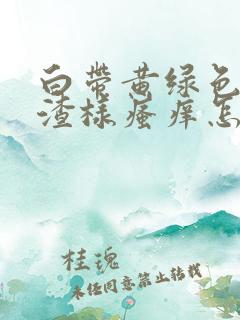 白带黄绿色
渣样瘙痒怎
桂瑰
未经同意禁止转载